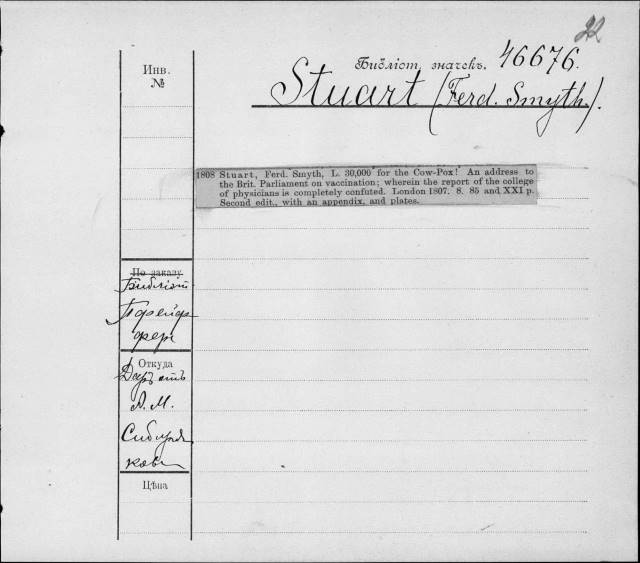 22
Инв.
№
Библіот. значекъ. 46676.
Stuart (Ferd. Smyth.).
1808 Stuart, Ferd. Smyth, L. 30,000 for the Cow-Pox! An address to
the Brit. Parliament on vaccination; wherein the report of the college
of physicians is completely confuted. London 1807. 8. 85 and XXI p.
Second edit., with an appendix, and plates.
По заказу
Библіот
Пфейф
фер
Откуда
Даръ отъ
А. М.
Сибиря
кова
Цѣна